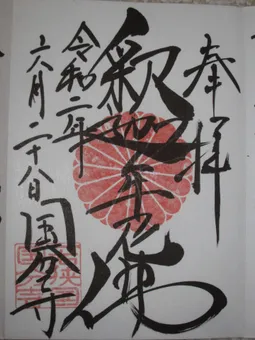 奉拝
釈迦牟尼佛
令和二年
六月二十八日
国分寺